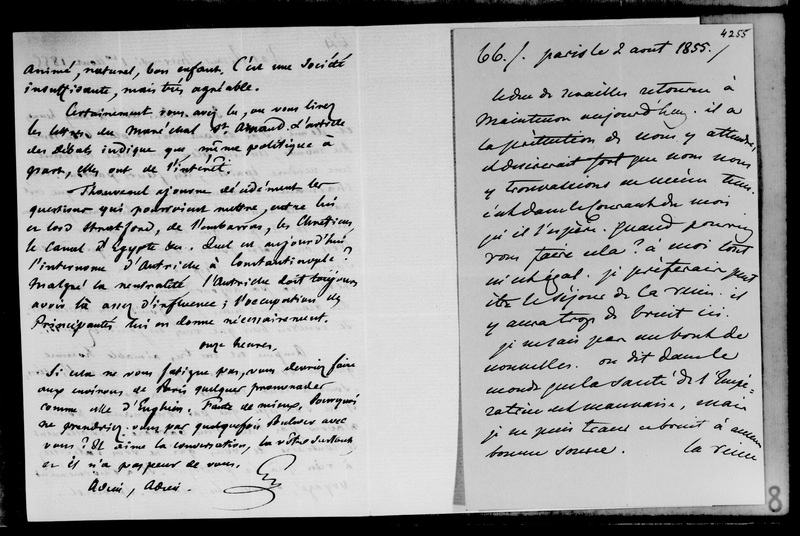 animé, naturel, bon enfant. C'est une Société
insuffisante, mais très agréable.
Certainement vous avez lu, ou vous lirez
les lettres du Maréchal St Arnaud. L'article
des débats indique que même politique à
part, elles ont de l'intérêt.
Thouvenel ajourne décidément les
questions qui pourroient mettre, entre lui
et lord Stratford, de l'embarras, les Chrétiens,
le Canal d'Egypte &a. Quel est aujourd'hui
l'internonce d'Autriche à Constantinople ?
Malgré la neutralité l'Autriche doit toujours
avoir là assez d'influence ; l'occupation des
Principautés lui en donne nécessairement.
onze heures.
Si cela ne vous fatigue pas, vous devriez faire
aux environs de Paris quelques promenades
comme celle d'Enghien. Faute de mieux, Pourquoi
ne prendriez-vous pas quelquefois Bulwer avec
vous ? Il aime la conversation, la vôtre surtout,
et il n'a pas peur de vous.
Adieu, Adieu.
4255
66./. paris le 2 aout 1855./
le duc de Noailles retourne à
Maintenon aujourd'huy. il a
la prétention de nous y attendre,
il desirerait fort que nous nous
y trouvassions en même tems.
c'est dans le courant du mois
qu'il l'espère. quand pourrez
vous faire cela ? à moi tout
m'est égal. je préférerais peut
être le séjour de la reine. il
y aura trop de bruit ici.
je ne sais pas un bout de
nouvelles. on dit dans le
monde que la santé de l'Impé-
ratrice est mauvaise, mais
je ne puis tracer ce bruit à aucune
bonne source. la reine
8